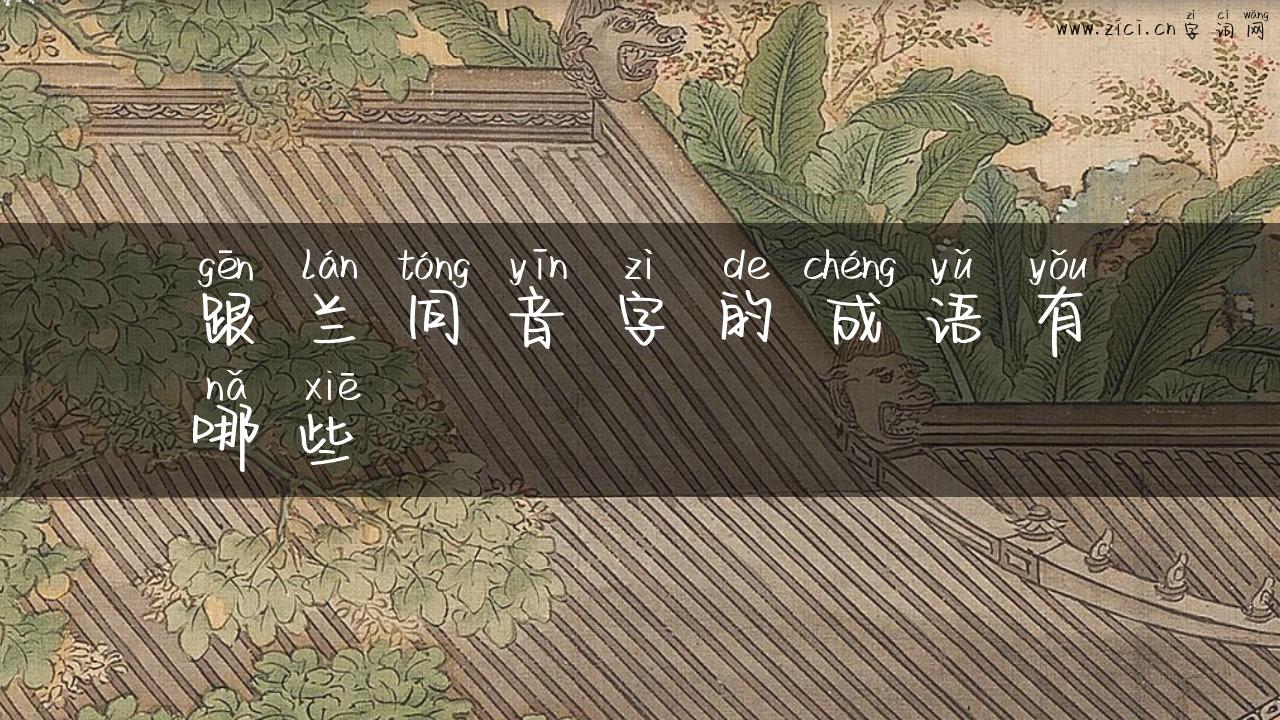 zì cí wǎng
www.zici.cn 字 词 网
gēn lán tóng yīn zì de chéng yǔ yǒu
跟 兰 同 音 字 的 成 语 有
nǎ xiē
哪 些